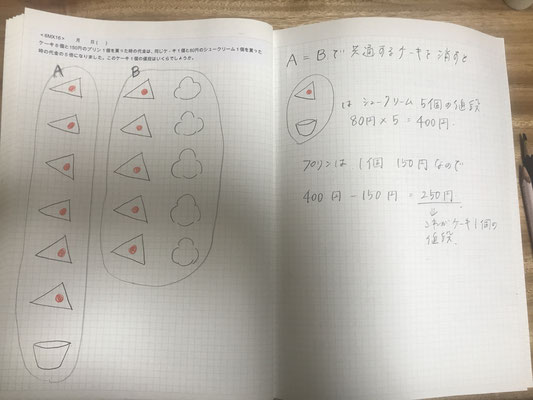 <6MX16>　月　日（　）
ケーキ6個と150円のプリン1個を買った時の代金は、同じケーキ1個と80円のシュークリーム1個を買った
時の代金の5倍になりました。このケーキ1個の値段はいくらでしょうか。
A
B
A = Bで共通するケーキを消すと
は シュークリーム 5個の値段
80円×5 = 400円.
プリンは 1個 150円なので
400円 - 150円 = 250円
↓
これがケーキ1個の
値段.